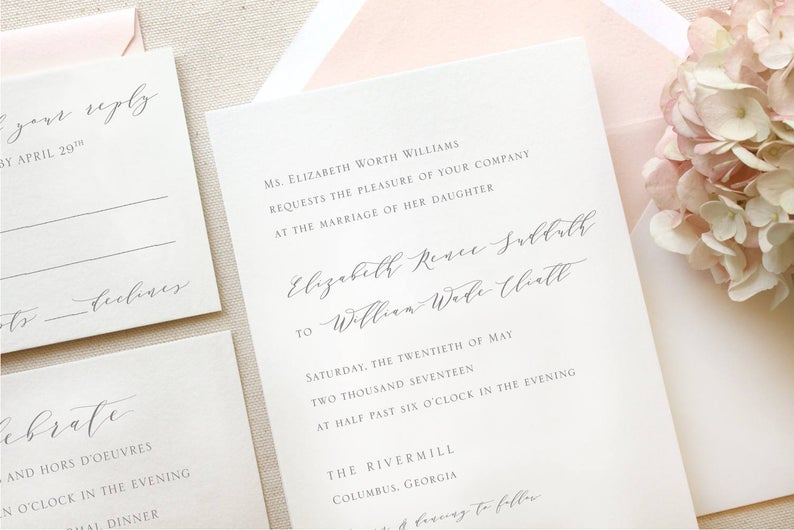 your reply
BY APRIL 29TH
declines
AND HORS D'OEUVRES
O'CLOCK IN THE EVENING
DINNER
MS. ELIZABETH WORTH WILLIAMS
REQUESTS THE PLEASURE OF YOUR COMPANY
AT THE MARRIAGE OF HER DAUGHTER
Elizabeth Renee Sudduth
TO William Wade Cliatt
SATURDAY, THE TWENTIETH OF MAY
TWO THOUSAND SEVENTEEN
AT HALF PAST SIX O'CLOCK IN THE EVENING
THE RIVERMILL
COLUMBUS, GEORGIA
& dancing to follow